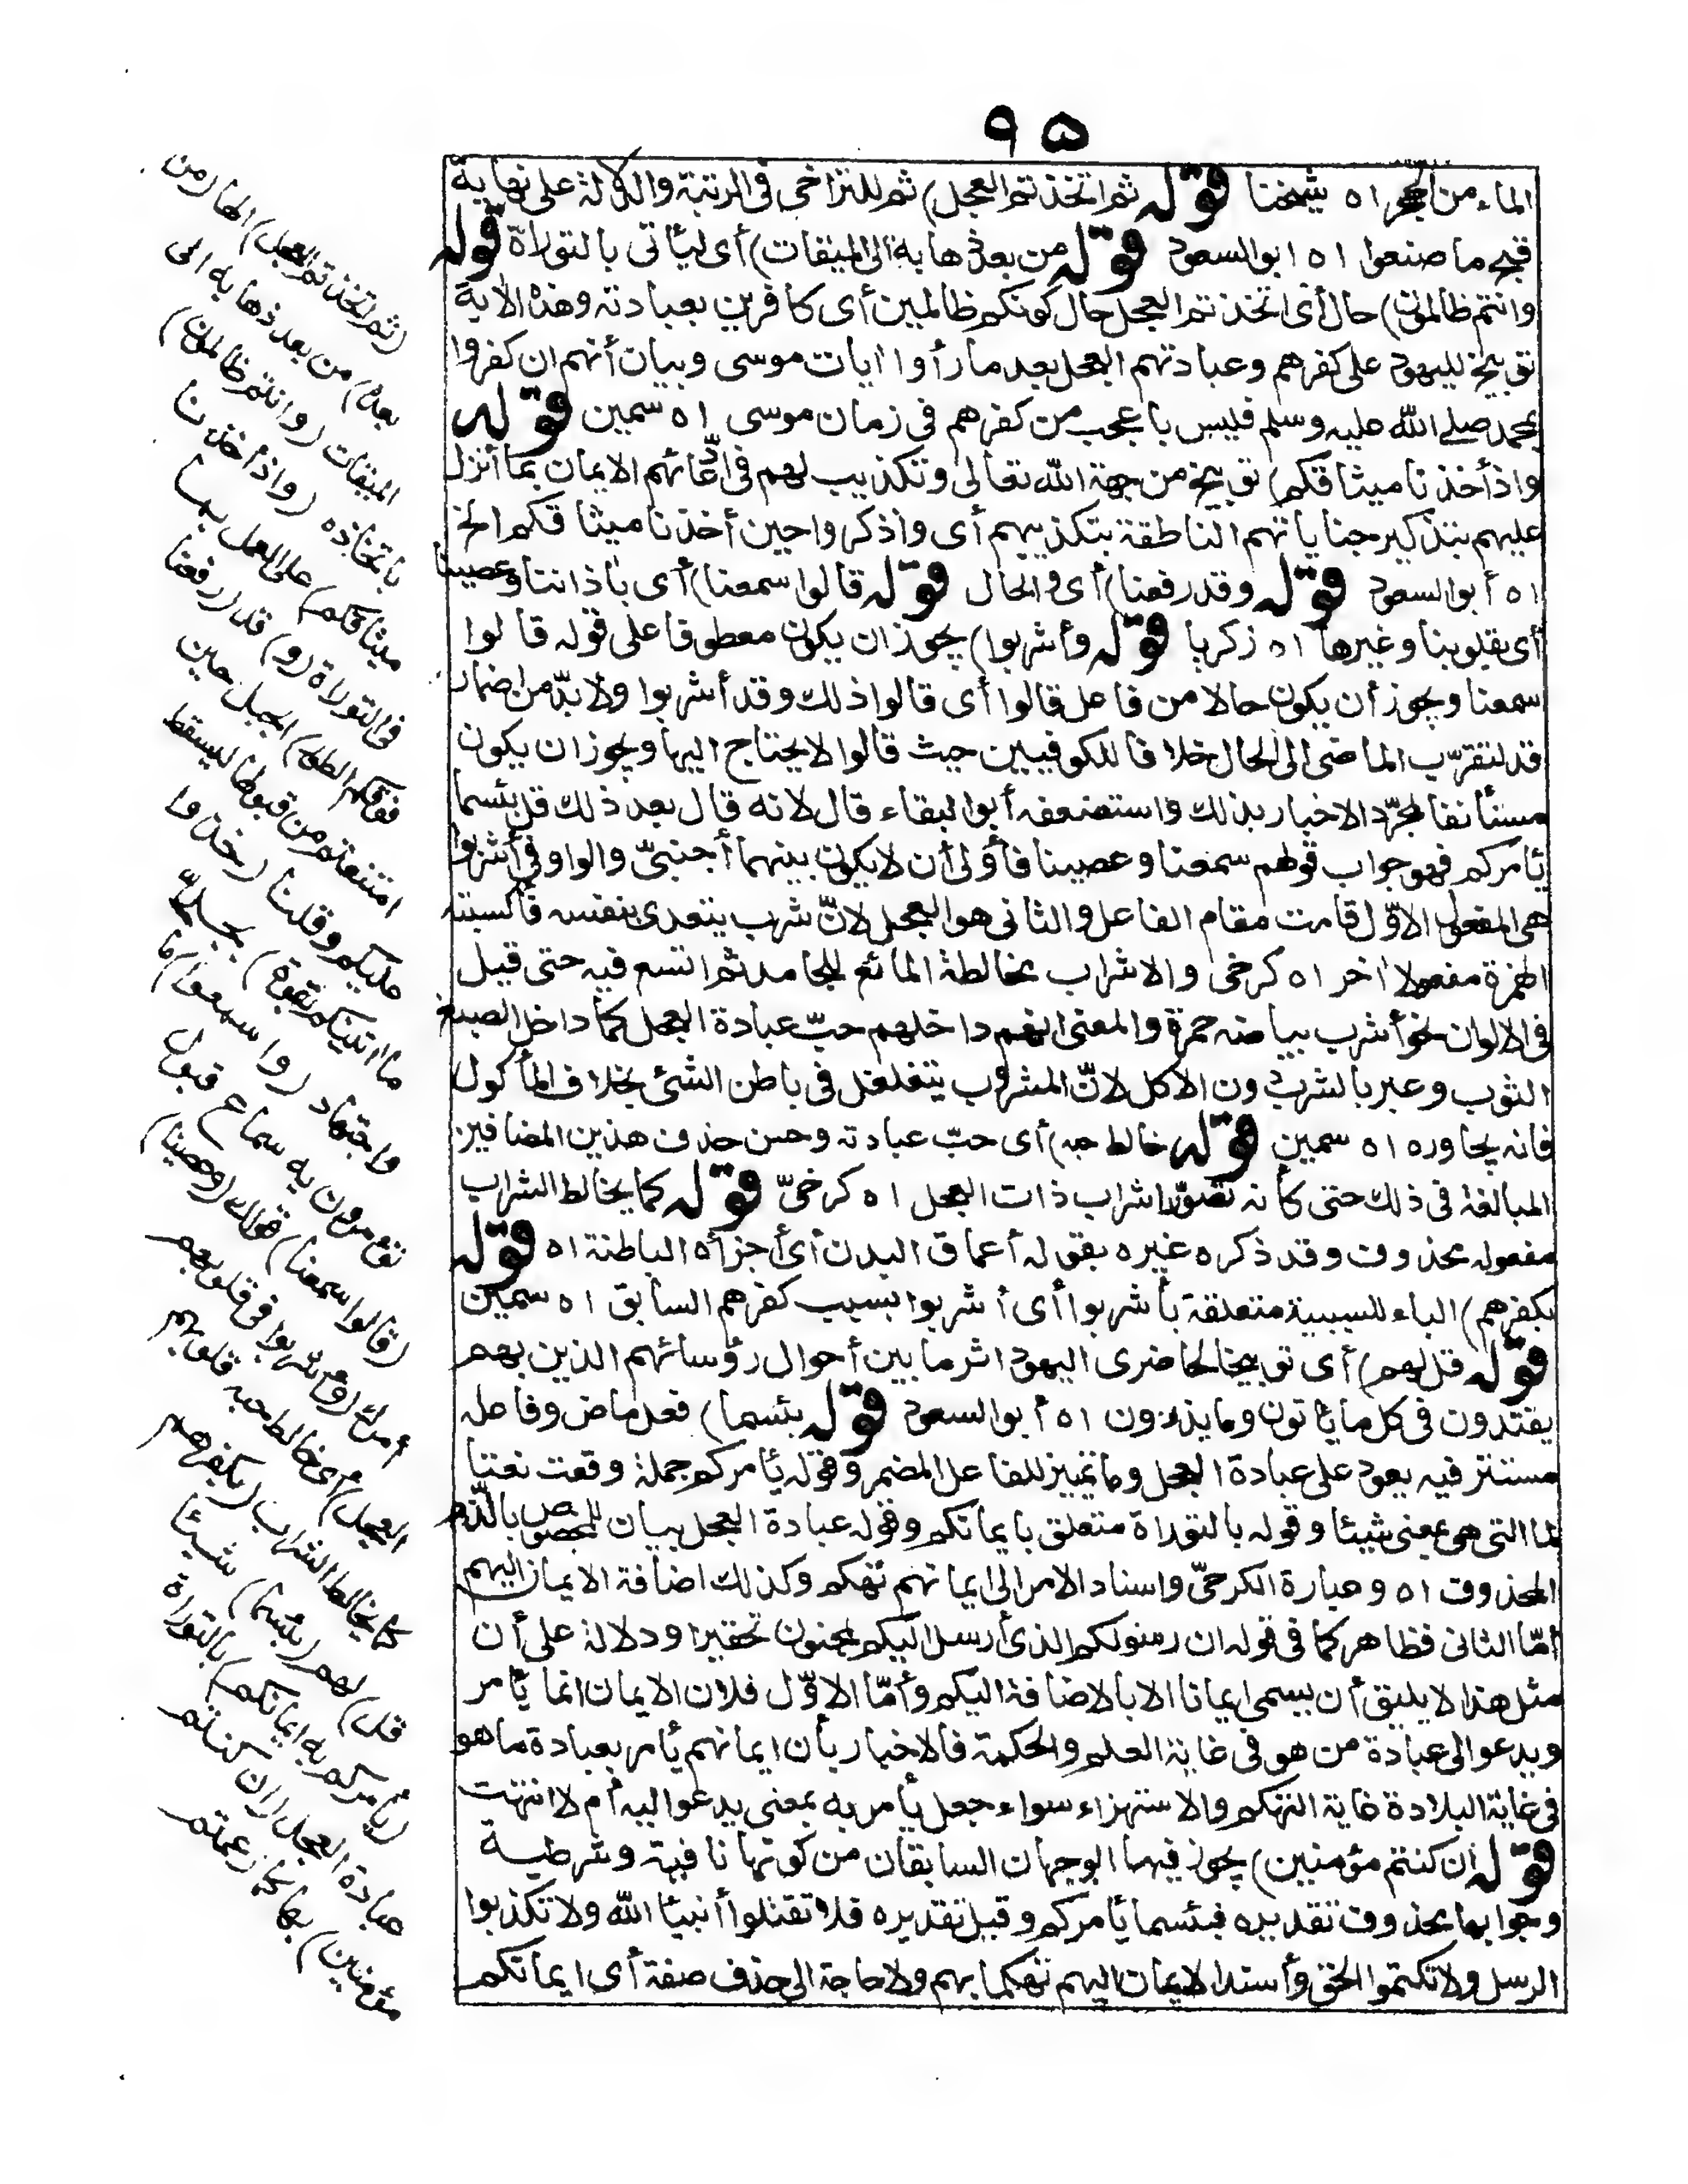 ٩٥
الماء من الحجر اه شيخنا قوله ثم اتخذتم العجل) ثم للتراخى فى الرتبة والدلالة على نهاية
قبح ما صنعوا اه ابو السعود قوله من بعد ذهابه الى الميقات) أى ليأتى بالتوراة قوله
وانتم ظالمون) حال أى اتخذتم العجل حال كونكم ظالمين أى كافرين بعبادته وهذه الآية
توبيخ لليهود على كفرهم وعبادتهم العجل بعد ما رأوا آيات موسى وبيان أنهم ان كفروا
بمحمد صلى الله عليه وسلم فليس باعجب من كفرهم فى زمان موسى اه سمين قوله
واذ أخذنا ميثاقكم) توبيخ من جهة الله تعالى وتكذيب لهم فى ادّعائهم الايمان بما أنزل
عليهم بتذكير جناياتهم الناطقة بتكذيبهم أى واذكروا حين أخذنا ميثاقكم الخ
اه أبو السعود قوله وقد رفعنا) أى والحال قوله قالوا سمعنا) أى باذاننا وعصينا
أى بقلوبنا وغيرها اه زكريا قوله وأشربوا) يجوز ان يكون معطوفا على قوله قالوا
سمعنا ويجوز أن يكون حالا من فاعل قالوا أى قالوا ذلك وقد أشربوا ولا بدّ من اضمار
قد لتقرّب الماضى الى الحال خلافا للكوفيين حيث قالوا لا يحتاج اليها ويجوز ان يكون
مستأنفا لمجرّد الاخبار بذلك واستضعفه أبو البقاء قال لانه قال بعد ذلك قل بئسما
يأمركم فهو جواب قولهم سمعنا وعصينا فأولى أن لا يكون بينهما أجنبىّ والواو فى أشربوا
هى المفعول الاوّل قامت مقام الفاعل والثانى هو العجل لانّ شرب يتعدى بنفسه فأكسبته
الهمزة مفعولا آخر اه كرخى والاشراب مخالطة المائع للجامد ثم اتسع فيه حتى قيل
فى الالوان نحو أشرب بياضه حمرة والمعنى انهم داخلهم حبّ عبادة العجل كما داخل الصبغ
الثوب وعبر بالشرب دون الاكل لانّ المشروب يتغلغل فى باطن الشئ بخلاف المأكول
فانه يجاوره اه سمين قوله خالط حبه) أى حبّ عبادته وحسن حذف هذين المضافين
المبالغة فى ذلك حتى كأنه تصوّر اشراب ذات العجل اه كرخىّ قوله كما يخالط الشراب
مفعوله محذوف وقد ذكره غيره بقوله أعماق البدن أى أجزاه الباطنة اه قوله
بكفرهم) الباء للسببية متعلقة بأشربوا أى أشربوا بسبب كفرهم السابق اه سمين
قوله قل لهم) أى توبيخا لحاضرى اليهود اثر ما بين أحوال رؤسائهم الذين بهم
يقتدون فى كل ما يأتون وما يذرون اه أبو السعود قوله بئسما) فعل ماض وفاعله
مستتر فيه يعود على عبادة العجل وما تمييز للفاعل المضمر وقوله يأمركم جملة وقعت نعتا
لما التى هى بمعنى شيئا وقوله بالتوراة متعلق بايمانكم وقوله عبادة العجل بيان للمخصوص بالذّم
المحذوف اه وعبارة الكرخىّ واسناد الامر الى ايمانهم تهكم وكذلك اضافة الايمان اليهم
أمّا الثانى فظاهر كما فى قوله ان رسولكم الذى أرسل اليكم لمجنون تحقيرا ودلالة على أن
مثل هذا لا يليق أن يسمى ايمانا الا بالاضافة اليكم وأمّا الاوّل فلان الايمان انما يأمر
ويدعو الى عبادة من هو فى غاية العلم والحكمة فالاخبار بأن ايمانهم يأمر بعبادة ما هو
فى غاية البلادة غاية التهكم والاستهزاء سواء جعل يأمر به بمعنى يدعو اليه أم لا انتهت
قوله ان كنتم مؤمنين) يجوز فيها الوجهان السابقان من كونها نافية وشرطية
وجوابها محذوف تقديره فبئسما يأمركم وقيل تقديره فلا تقتلوا أنبياء الله ولا تكذبوا
الرسل ولا تكتموا الحق وأسند الايمان اليهم تهكما بهم ولا حاجة الى حذف صفة أى ايمانكم
(ثم اتخذتم العجل) الها (من
بعده) من بعد ذهابه الى
الميقات (وانتم ظالمون)
باتخاذه (واذ أخذنا
ميثاقكم) على العمل بما
فى التوراة (و) قد (رفعنا
فوقكم الطور) الجبل حين
امتنعتم من قبولها ليسقط
عليكم وقلنا (خذوا
ما اتيناكم بقوة) بجدّ
واجتهاد (واسمعوا) ما
تؤمرون به سماع قبول
(قالوا سمعنا) قولك (وعصينا)
أمرك (وأشربوا فى قلوبهم
العجل) أى خالط حبه قلوبهم
كما يخالط الشراب (بكفرهم
قل) لهم (بئسما) شيئا
(يأمركم به ايمانكم) بالتوراة
عبادة العجل (ان كنتم
مؤمنين) بها كما زعمتم